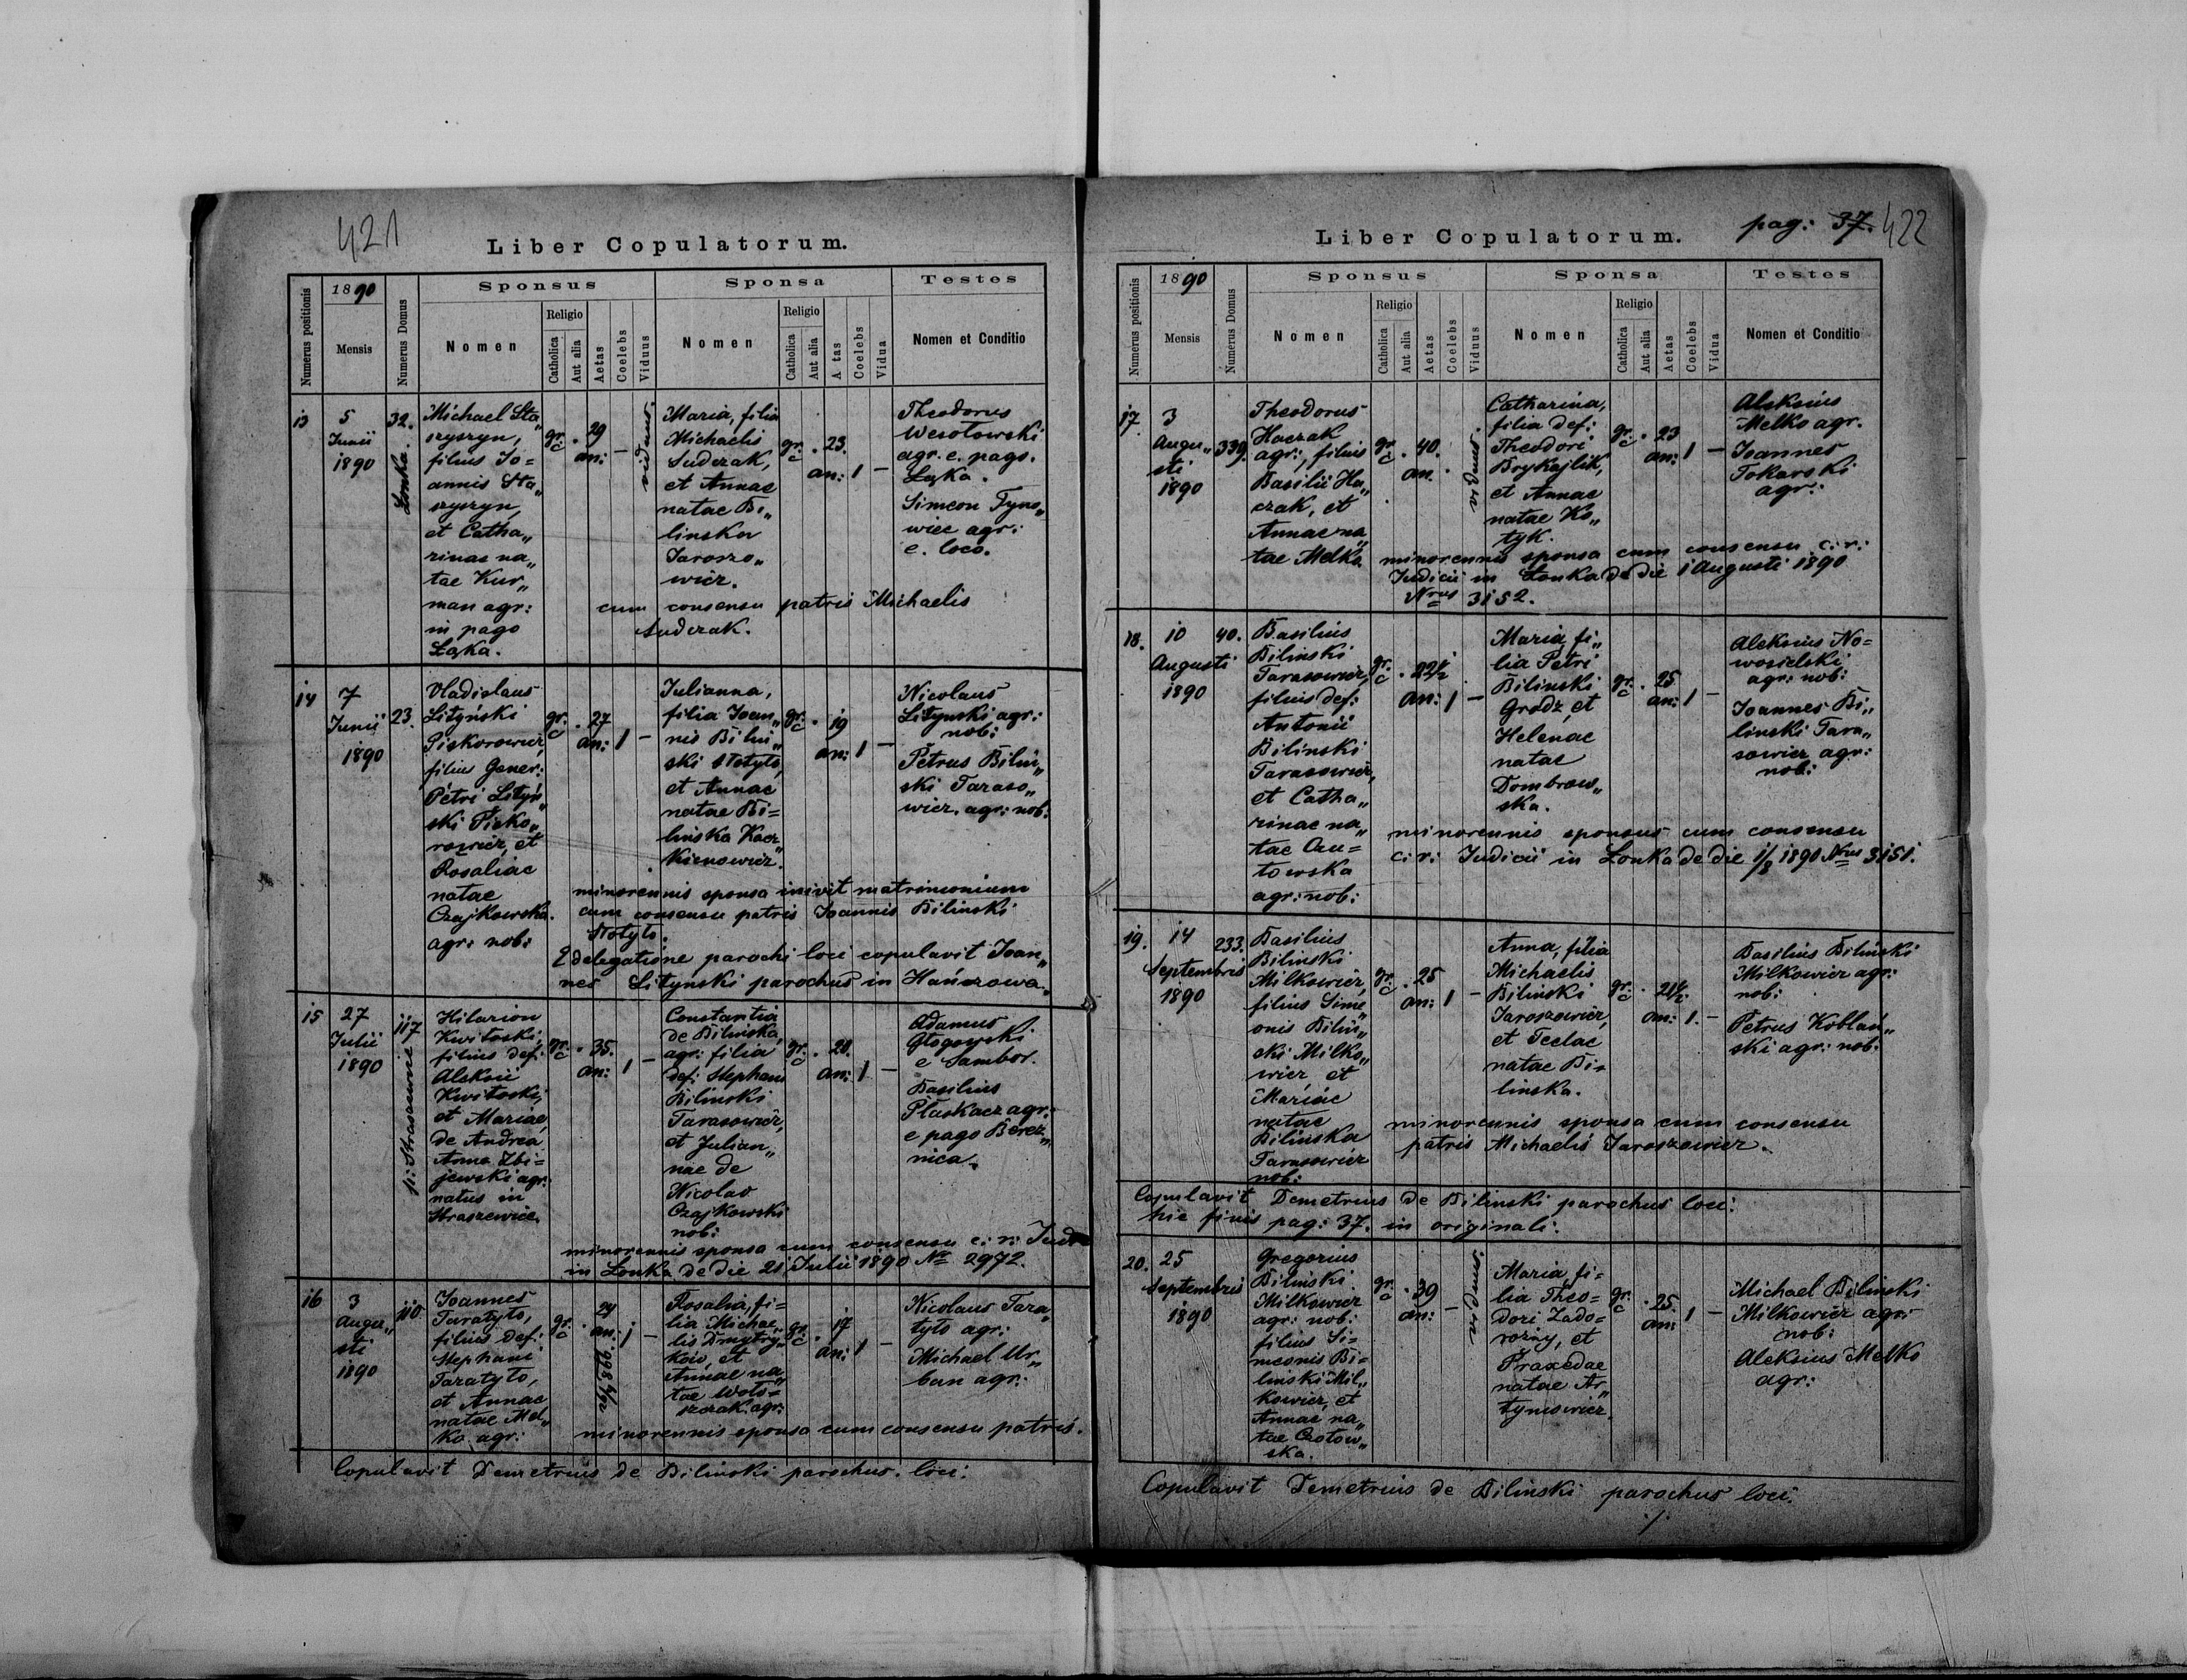 421
Liber Copulatorum.
Numerus positionis
1890
Mensis
Numerus Domus
Sponsus
Nomen
Religio
Catholica
Aut alia
Aetas
Coelebs
Viduus
Sponsa
Nomen
Religio
Catholica
Aut alia
A tas
Coelebs
Vidua
Testes
Nomen et Conditio
13
5
Junii
1890
32.
Lonka.
Michael Sta„
szyszyn,
filius Jo=
annis Sta„
szyszyn,
et Catha„
rinae na„
tae Kur„
man agr:
in pago
Łąka.
gr.
c
29
an:
—
viduus.
Maria, filia
Michaelis
Sudczak,
et Annae
natae Bi„
linska
Jaroszo„
wicz.
gr.
c
23.
an:
1
—
Theodorus
Wesołowski
agr. e. pago.
Łąka.
Simeon Tyno„
wiec agr:
e. loco.
cum consensu patris Michaelis
Sudczak.
14
7
Junii
1890
23.
Vladislaus
Lityński
Piskorowicz,
filius Gener:
Petri Lityń„
ski Pisko„
rowicz, et
Rosaliae
natae
Czajkowska.
agr: nob:
gr.
c
27
an:
1
—
Julianna,
filia Joan„
nis Bilin„
ski Stotyto,
et Annae
natae Bi=
linska Kacz„
kienowicz.
gr.
c
19
an:
1
—
Nicolaus
Litynski agr:
nob:
Petrus Bilin„
ski Taraso„
wicz. agr: nob:
minorennis sponsa inivit matrimonium
cum consensu patris Joannis Bilinski
Stotyto.
E delegatione parochi loci copulavit Joan„
nes Litynski parochus in Hańczowa.
15
27
Julii
1890
117
p: Straszewice
Hilarion
Kwitoski,
filius def:
Aleksii
Kwitoski,
et Mariae,
de Andrea
Anna Zbi=
jewski agr:
natus in
Straszewice.
gr.
c
35.
an:
1
—
Constantia
de Bilinska,
agr: filia
def: Stephani
Bilinski
Tarasowicz,
et Julian„
nae de
Nicolao
Czajkowski
nob:
gr.
c
20.
an:
1
—
Adamus
Głogowski
e Sambor.
Basilius
Płaskacz agr:
e pago Berez„
nica.
minorennis sponsa cum consensu c: r: Jud
in Lonka de die 21 Julii 1890 No 2972.
16
3
Augu„
sti
1890
110
Joannes
Taratyto,
filius def:
Stephani
Taratyto,
et Annae
natae Mel„
ko agr:
gr.
c
24
an:
1
—
Rosalia, fi=
lia Michae„
lis Dmytry„
kow, et
Annae na„
tae Woło=
szczak. agr:
gr.
c
17
an:
1
—
Nicolaus Tara„
tyto agr:
Michael Ur„
ban agr:
minorennis sponsa cum consensu patris.
Copulavit Demetrius de Bilinski parochus. loci:
pag: 37. 422
Liber Copulatorum.
Numerus positionis
1890
Mensis
Numerus Domus
Sponsus
Nomen
Religio
Catholica
Aut alia
Aetas
Coelebs
Viduus
Sponsa
Nomen
Religio
Catholica
Aut alia
Aetas
Coelebs
Vidua
Testes
Nomen et Conditio
17
3
Augu„
sti
1890
339.
Theodorus
Haczak
agr:, filius
Basilii Ha„
czak, et
Annae na„
tae Melko.
gr.
c
40.
an.
viduus.
Catharina,
filia def:
Theodori
Brykajlik,
et Annae
natae Ko„
tyk.
gr.
c
23
an:
1
—
Aleksius
Melko agr.
Joannes
Tokarski
agr:
minorennis sponsa cum consensu c: r:
Judicii in Lonka de die 1 Augusti 1890
Nrus 3152.
18.
10
Augusti
1890
40.
Basilius
Bilinski
Tarasowicz,
filius def:
Antonii
Bilinski
Tarasowicz,
et Catha„
rinae na„
tae Czu=
towska
agr: nob:
gr.
c
22½
an:
1
—
Maria, fi„
lia Petri
Bilinski
Grodz, et
Helenae
natae
Dombrow„
ska.
gr.
c
25
an:
1
—
Aleksius No=
wosielski
agr: nob:
Joannes Bi„
linski Tara„
sowicz agr:
nob:
minorennis sponsus cum consensu
c: r: Judicii in Lonka de die 1/8 1890 Nrus 3151.
19.
14
Septembris
1890
233.
Basilius
Bilinski
Milkowicz,
filius Sime„
onis Bilin„
ski Milko„
wicz et
Mariae
natae
Bilinska
Tarasowicz
nob:
gr.
c
25
an:
1
—
Anna, filia
Michaelis
Bilinski
Jaroszowicz,
et Teclae
natae Bi=
linska.
gr.
c
21½.
an:
1.
—
Basilius Bilinski
Milkowicz agr:
nob:
Petrus Koblań„
ski agr: nob:
minorennis sponsa cum consensu
patris Michaelis Jaroszowicz.
Copulavit Demetrius de Bilinski parochus loci:
hic finis pag: 37. in originali:
20.
25
Septembris
1890
Gregorius
Bilinski
Milkowicz
agr: nob:
filius Si=
meonis Bi=
linski Mil„
kowicz, et
Annae na„
tae Czotow„
ska.
gr.
c
39
an:
—
viduus
Maria, fi=
lia Theo=
dori Zado=
rozny, et
Praxedae
natae Ar„
tymowicz.
gr.
c
25.
an:
1
—
Michael Bilinski
Milkowicz agr:
nob:
Aleksius Melko
agr:
Copulavit Demetrius de Bilinski parochus loci.